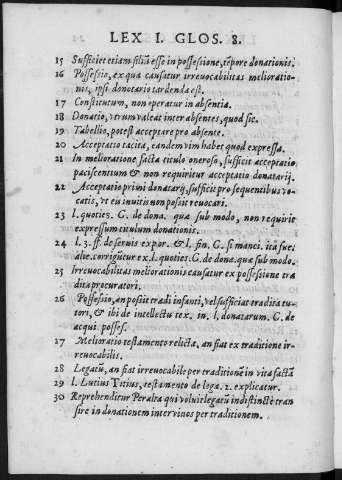 LEX I. GLOS. 8.
15 Sufficiet etiam filiũ esse in possessione, tẽpore donationis.
16 Possessio, ex qua causatur irreuocabilitas melioratio-
nis, ipsi donatario tradenda est.
17 Constitutum, non operatur in absentia.
18 Donatio, vtrum valeat inter absentes, quod sic.
19 Tabellio, potest acceptare pro absente.
20 Acceptatio tacita, eandem vim habet quod expressa.
21 In melioratione facta titulo oneroso, sufficit acceptatio
paciscentium & non requiritur acceptatio donatarij.
22 Acceptatio primi donatarij, sufficit pro sequentibus vo-
catis, vt eis inuitis non possit reuocari.
23 l. quoties. C. de dona. quæ sub modo, non requirit
expressum titulum donationis.
24 l. 3. ff. de seruis expor. & l. fin. C. si manci. ita fue.
alie. corrigũtur ex. l. quoties. C. de dona. quæ sub modo.
25 Irreuocabilitas meliorationis causatur ex possessione tra
dita procuratori.
26 Possessio, an possit tradi infanti, vel sufficiat tradita tu-
tori, & ibi de intellectu tex. in. l. donatarum. C. de
acqui posses.
17 Melioratio testamento relicta, an fiat ex traditione ir-
reuocabilis.
28 Legatũ, an fiat irreuocabile per traditionẽ in vita factã
29 l. Lutius Titius, testamento de lega. 2. explicatur.
30 Reprehenditur Peralta qui voluit legatũ indistinctè tran
sire in donationem inter viuos per traditionem.